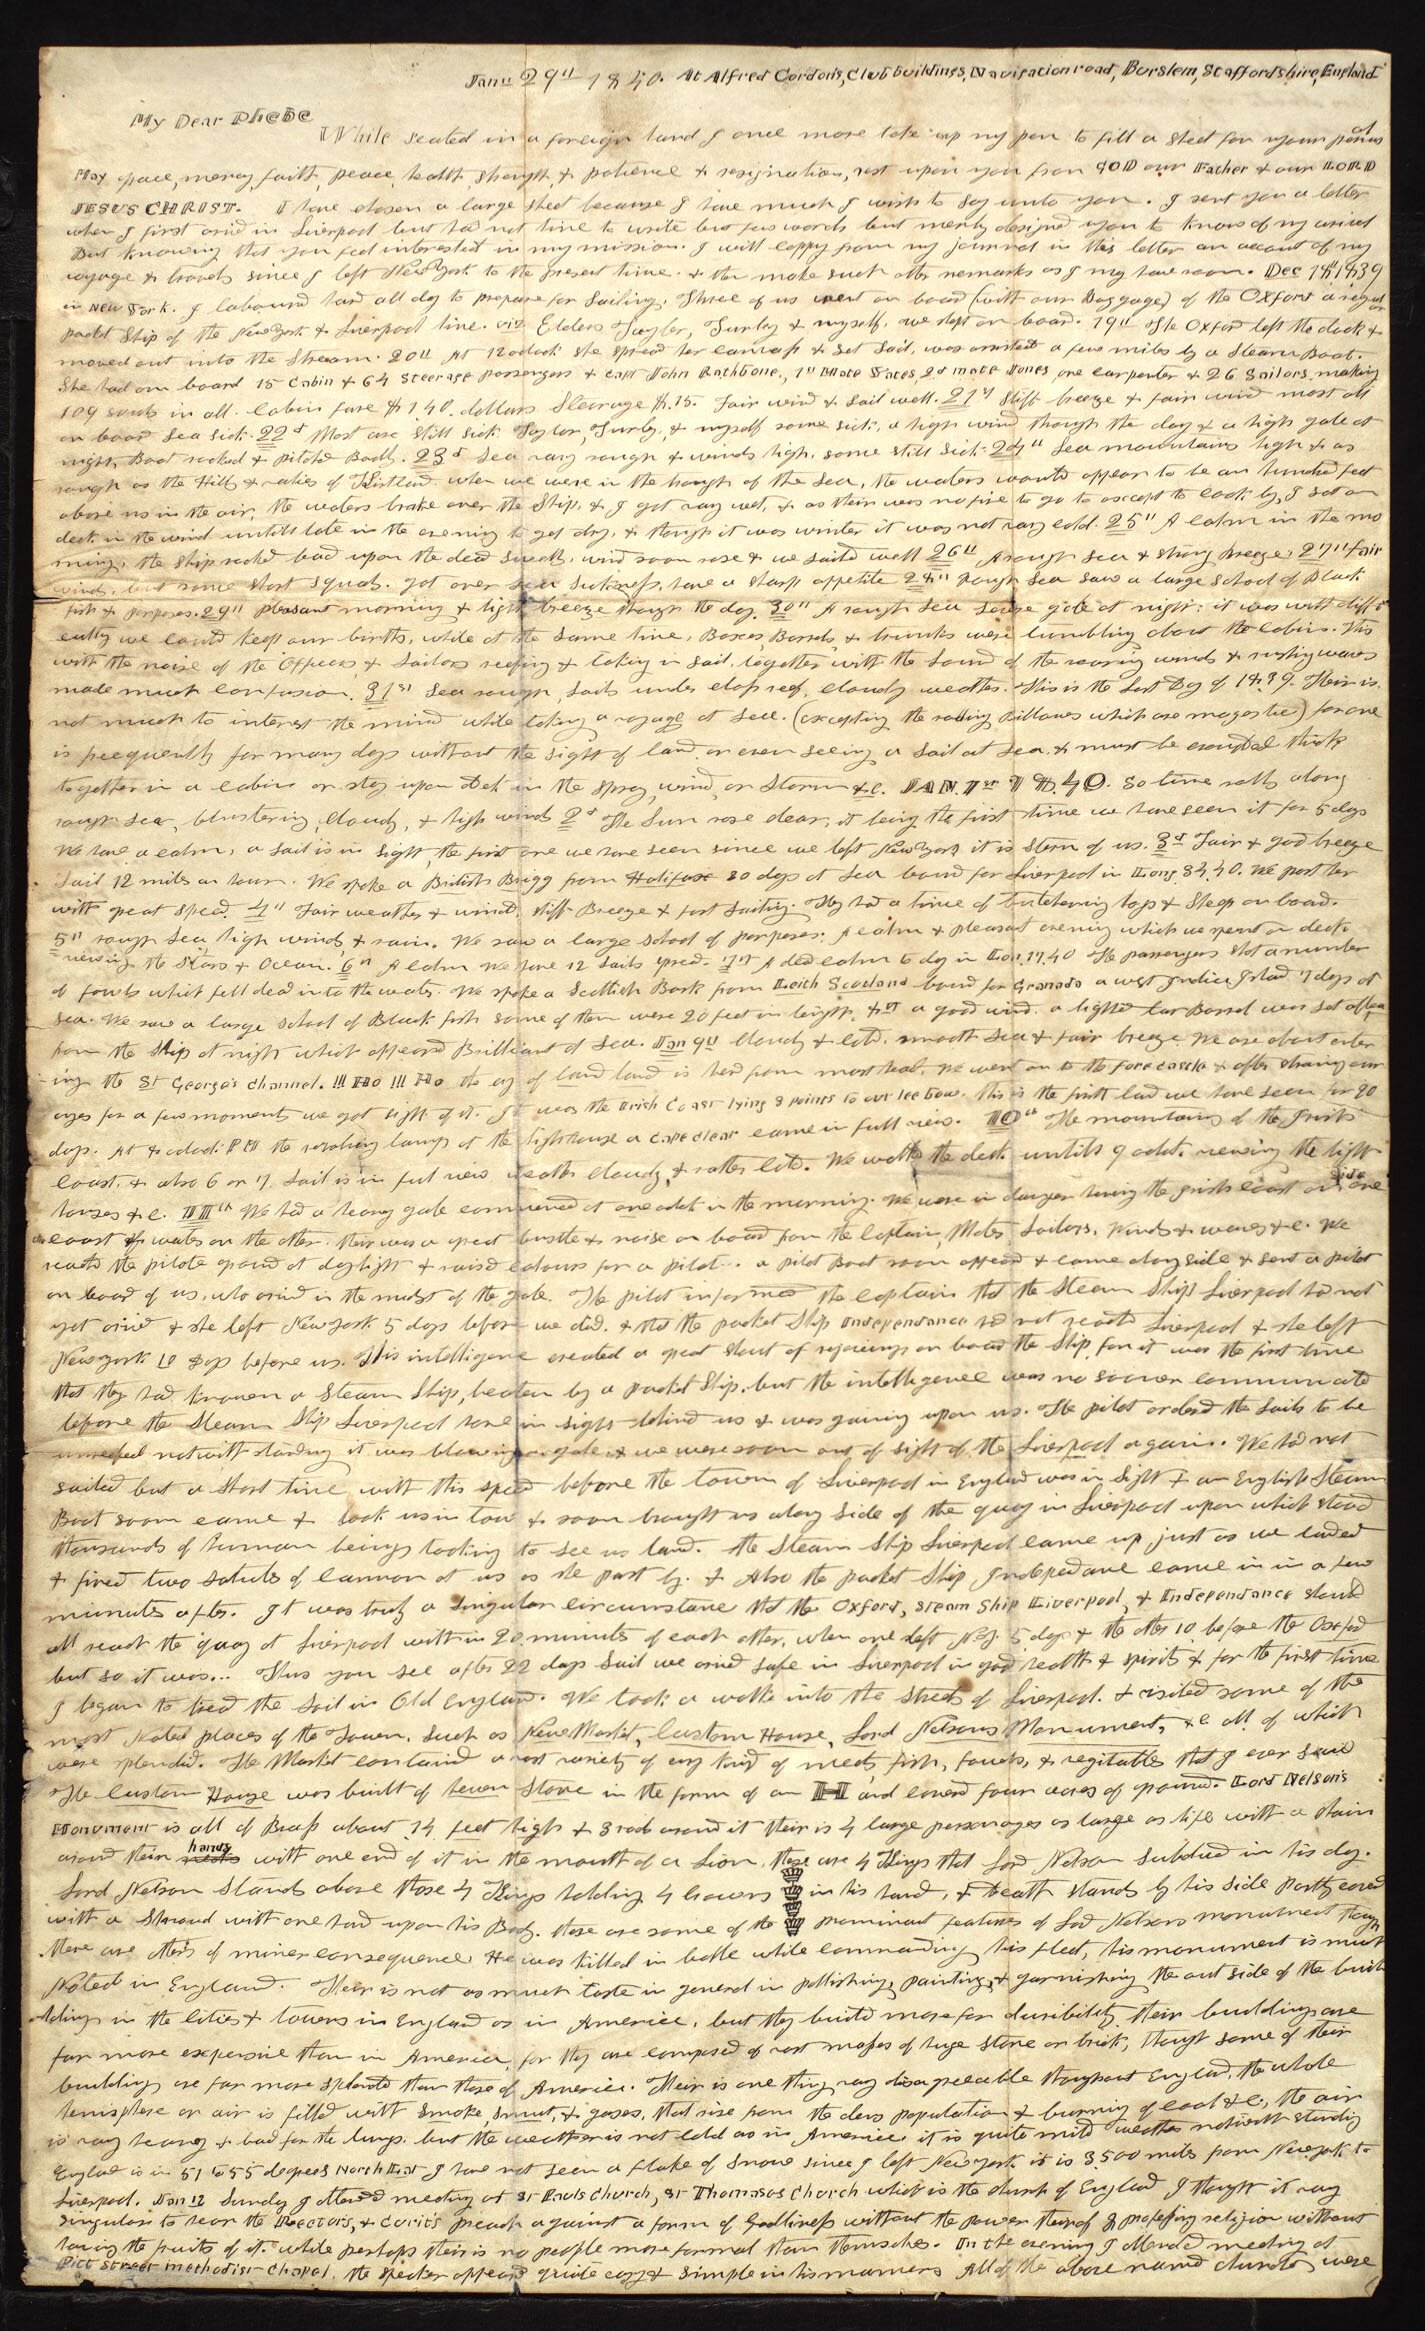 Janu 29" 1840. At Alfred Cordon's, Club buildings, Navigation road, Burslem, Staffordshire, England
My Dear Phebe
While seated in a foreign land I once more take up my pen to fill a sheet for your perusal
May grace, mercy, faith, peace, health, strength, & patience & resignation, rest upon you from GOD our Father & our LORD
JESUS CHRIST. I have chosen a large sheet because I have much I wish to say unto you. I sent you a letter
when I first arivd in Liverpool but had not time to write but few words but merely designed you to know of my arival
But knowing that you feel interested in my mission. I will coppy from my journal in this letter an account of my
voyage & travels since I left New York to the present time. & then make such other remarks as I may have room. Dec 18th 1839
in New York. I labourd hard all day to prepare for Sailing. Three of us went on board (with our Baggage) of the Oxford a regular
packet Ship of the New York & Liverpool line. viz Elders Taylor, Turley & myself. we slept on board. 19" The Oxford left the dock &
moved out into the Stream. 20" At 12 oclock she spread her canvass & set Sail, was assisted a few miles by a Steam Boat.
She had on board 15 Cabin & 64 Steerage passengers & Capt John Rathbone, 1st Mate Yates, 2d mate Jones, one carpenter & 26 Sailors. making
109 souls in all. Cabin fare $140. dollars Stearage $15. Fair wind & Sail well. 21st Stiff breeze & fair wind most all
on board Sea Sick. 22d Most are still sick Taylor, Turley, & myself some sick, a high wind though the day & a high gale at
night, Boat rocked & pitchd Badly. 23d Sea vary rough & winds high. some still Sick. 24" Sea mountains high & as
rough as the Hills & vallies of Kirtland. when we were in the trough of the Sea, the waters would appear to be an hundred feet
above us in the air, the waters brake over the Ship, & I got vary wet, & as their was no fire to go to except to cook by, I sat on
deck in the wind untill late in the evening to get dry, & though it was winter it was not vary cold. 25" A calm in the mo
rning, the ship rocked bad upon the dead swells, wind soon rose & we saild well 26" A rough Sea & strong Breeze. 27" fair
wind, but some short squals. got over Sea Sickness, have a sharp appetite 28" Rough Sea saw a large School of Black
fish & porposes. 29" pleasant morning & light breeze though the day. 30" A rough Sea severe gale at night: it was with diffi
culty we could keep our births, while at the same time, Boxes, Barrels, & trunks were tumbling about the cabin. This
with the noise of the Officers & Sailors reefing & taking in sail, together with the sound of the roaring winds & rushing waves
made much confusion. 31st Sea rough, Sails under close reef, cloudy weather. This is the last Day of 1839. Their is
not much to interest the mind while taking a voyage at sea. (excepting the rolling Billows which are magestic) for one
is frequently for many days without the sight of land or even seeing a Sail at sea. & must be crouded thick
together in a cabin or stay upon Deck in the Spray, wind, or Storm &c. JAN 1st 1840. So time rolls along
rough Sea, blustering, cloudy, & high winds 2d The Sun rose clear, it being the first time we have seen it for 5 days
We have a calm, a Sail is in sight, the first one we have seen since we left New York it is stern of us. 3d Fair & good breeze
Sail 12 miles an hour. We spoke a British Brigg from Halifax 30 days at Sea bound for Liverpool in Long 34,40. We past her
with great speed. 4" Fair weather & wind, stiff Breeze & fast sailing. They had a time of butchering hogs & Sheep on board.
5" rough Sea, high winds, & rain. We saw a large School of porposes. A calm & pleasant evening which we spent on deck
viewing the Stars & Ocean. 6th A calm We have 12 Sails spred. 7th A ded calm to day in Lon. 17,40 The passengers Shot a number
of fowls which fell dead into the water. We spoke a Scottish Bark from Leith Scotland bound for Granada a west Indies Island 7 days at
Sea. We saw a large School of Black fish some of them were 20 feet in length. 8th a good wind. a lighted tar Barrel was set aflo
from the Ship at night which appeard Brilliant at Sea. Jan 9" Cloudy & cold. smooth Sea & fair breeze. We are about enter
ing the St George's Channel. !!! Ho !!! Ho the cry of land land is herd from mast head. We went on to the Forecastle & after straining our
eyes for a few moments we got sight of it. It was the Irish Coast lying 3 points to our lee bow. this is the first land we have seen for 20
days. At 8 oclock PM the revolving lamp of the lighthouse a Cape Clear came in full view. 10th The mountains of the Irish
coast, & also 6 or 7 Sail is in full view weather cloudy, & rather cold. We walked the deck untill 9 oclock. viewing the light
houses &c. 11th We had a heavy gale commenced at one oclock in the morning. We were in danger having the Irish coast on one side
coast of wales on the other. their was a great bustle & noise on board from the Captain, Mates, Sailors, Winds & waves &c. We
reachd the pilote ground at daylight & raised colours for a pilot. a pilot Boat soon appeard & came along side & sent a pilot
on board of us, who arivd in the midst of the gale. The pilot informed the Captain that the Steam Ship Liverpool had not
yet arivd & she left New York 5 days before we did. & that the packet Ship Independance had not reachd Liverpool & she left
New York 10 Days before us. This intelligence created a great shout of rejoicings on board the Ship, for it was the first time
that they had known a Steam Ship, beaten by a packet Ship. but the intelligence was no sooner communicated
before the Steam Ship Liverpool hove in sight behind us & was gaining upon us. The pilot orderd the Sails to be
unreefed notwithstanding it was blowing a gale & we were soon out of sight of the Liverpool again. We had not
sailed but a short time with this speed before the town of Liverpool in England was in Sight & an English Steam
Boat soon came & took us in tow & soon brought us along side of the quay in Liverpool upon which stood
thousands of human beings looking to see us land. the Steam Ship Liverpool came up just as we landed
& fired two salutes of cannon at us as she past by. & Also the packet Ship Independance came in in a few
minutes after. It was truly a singular circumstance that the Oxford, Steam Ship Liverpool, & Independance should
all reach the quay at Liverpool within 20 minutes of each other, when one left N.Y. 5 days & the other 10 before the Oxford
but so it was... Thus you see after 22 days Sail we arivd safe in Liverpool in good health & spirits & for the first time
I began to tread the soil in Old England. We took a walk into the streets of Liverpool. & visited some of the
most Noted places of the Town. such as New Market, Custom House, Lord Nelsons Monument, &c all of which
were splendid. The Market contained a vast variety of evry kind of meets, fish, fowls, & vegitables that I ever saw
The Custom House was built of hewn Stone in the form of an H and coverd four acres of ground. Lord Nelson's
Monument is all of Brass about 14 feet high & 3 rods around it their is 4 large personages as large as life with a chain
around their hands with one end of it in the mouth of a Lion, these are 4 Kings that Lord Nelson subdued in his day.
Lord Nelson Stands above those 4 Kings holding 4 Crowns in his hand, & Death stands by his side partly coverd
with a Shroud with one hand upon his Body. these are some of the prominent features of Lord Nelsons monument though
there are others of miner consequence He was killed in battle while commanding his fleet, his monument is much
Noted in England. Their is not as much taste in general in pollishing, painting, & garnishing the out side of the buil
ldings in the Cities & towns in England as in America, but they build more for duribility their buildings are
far more expensive than in America, for they are composed of vast masses of huge Stone or brick, though some of their
buildings are far more splendid than those of America. Their is one thing vary disagreeable throughout England, the whole
hemisphere or air is filled with smoke, smut, & gases, that rise from the dens population & burning of coal &c, the air
is vary heavy & bad for the lungs. but the weather is not cold as in America it is quite mild weather notwithstanding
England is in 51 to 55 degrees North Lat I have not seen a flake of snow since I left New York it is 3,500 miles from New York to
Liverpool. Jan 12 Sunday I attended meeting at St Pauls Church, St Thomases Church which is the church of England I thought it vary
singular to hear the Rectors, & Curits preach against a form of Godliness without the power thereof & professing religion without
having the fruits of it. while perhaps their is no people more formal than themselves. In the evening I attended meeting at
Pitt Street methodist Chapel, the speaker appeard quite easy & simple in his manners All of the above named churches were